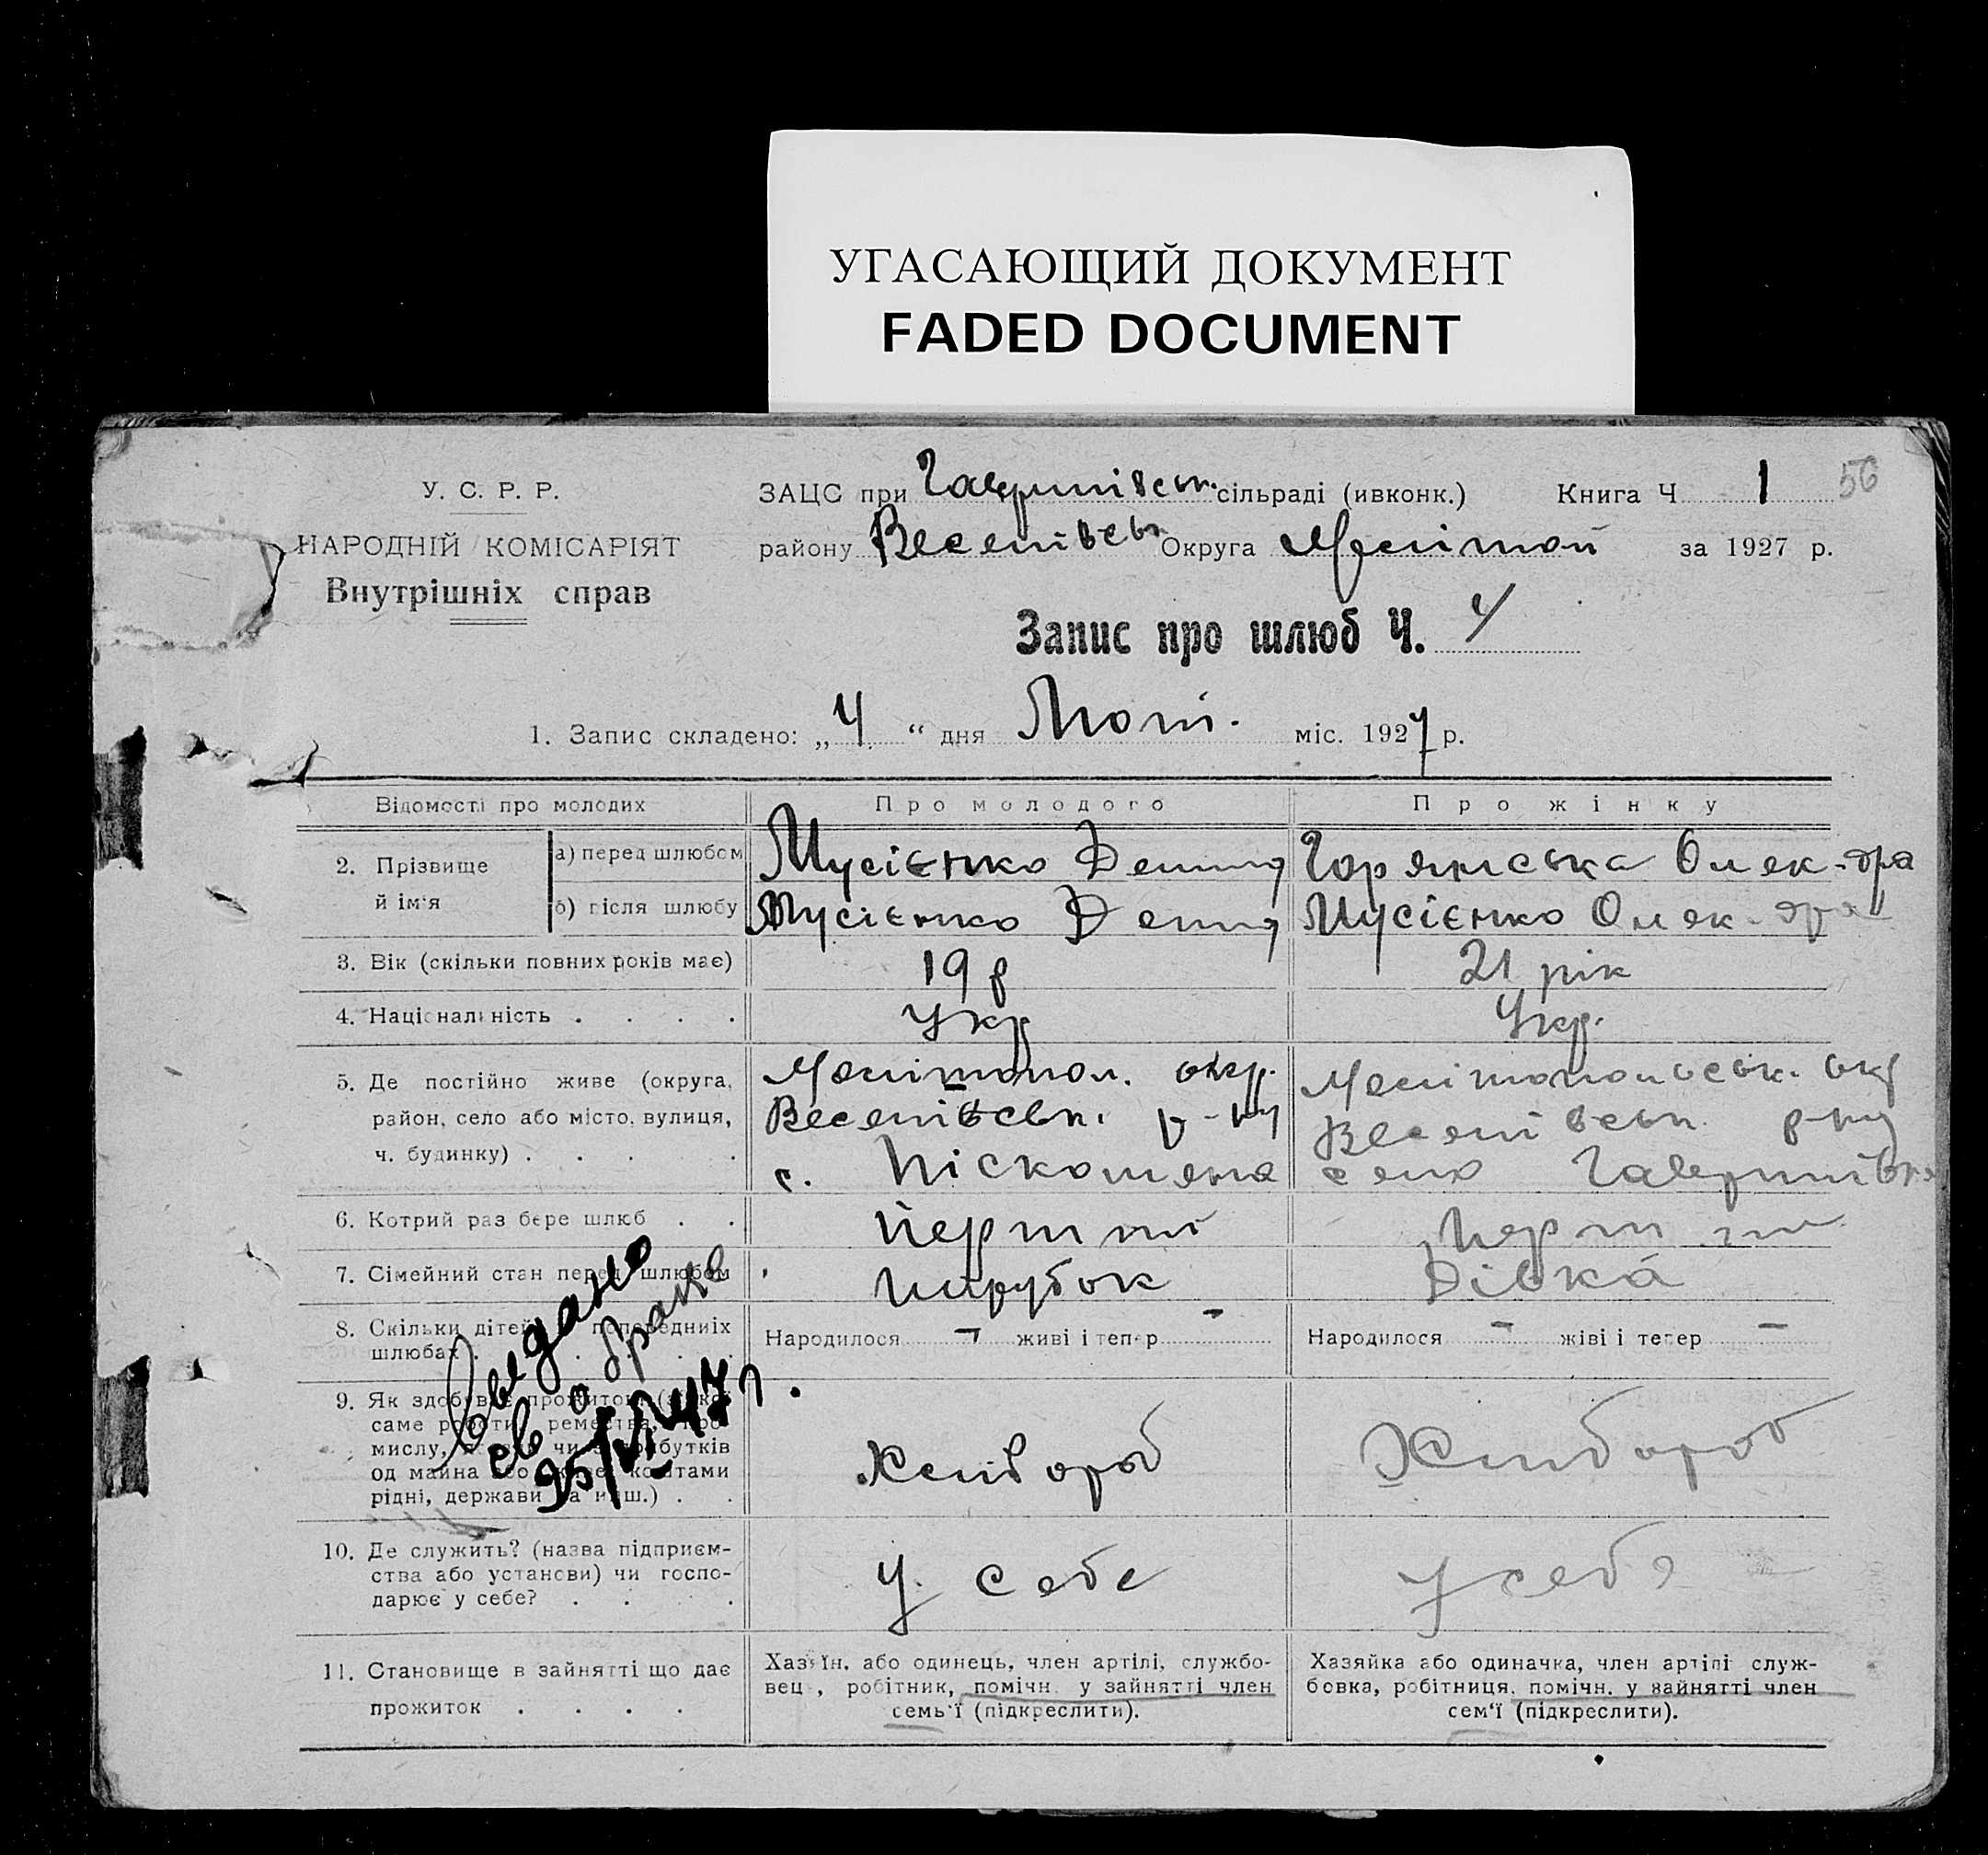 УГАСАЮЩИЙ ДОКУМЕНТ
FADED DOCUMENT
У. С. Р. Р.
НАРОДНІЙ КОМІСАРІЯТ
Внутрішніх справ
ЗАЦС при Гаврилівськ. сільраді (ивконк.) Книга Ч 1 56
району Веселівськ Округа Меліт
за 1927 р.
Запис про шлюб Ч. 4
1. Запис складено: „ 4 “ дня Лют. міс. 1927 р.
Відомості про молодих Про молодого Про жінку
2. Прізвище й ім'я
а) перед шлюбом Мусієнко Демид Горянська Олек-дра
б) після шлюбу Мусієнко Демид Мусієнко Олек-дра
3. Вік (скільки повних років має) 19 р 21 рік
4. Національність . . . . Укр Укр.
5. Де постійно живе (округа, Мелітопол. окр. Мелітопольськ. окр
район, село або місто, вулиця, Веселівськ. р-ну Веселівськ. р-ну
ч. будинку) . . . . с. Піскошена село Гаврилівка
6. Котрий раз бере шлюб . . перший перший
7. Сімейний стан перед шлюбом парубок Дівка
8. Скільки дітей попередниіх Народилося – живі і тепер – Народилося – жіві і тепер –
шлюбах . . . .
9. Як здобував прожиток (з якої
саме роботи, ремества, про-
мислу, чи з прибутків Хлібороб Хлібороб
од майна або коштами
рідні, держави та инш.) . .
Свидано
св о браке
25/VI 47 г.
10. Де служить? (назва підприєм-
ства або установи) чи госпо- У себе У себе
дарює у себе? . . .
11. Становище в зайнятті що дає
прожиток . . . .
Хазяїн, або одинець, член артілі, службо-
вець, робітник, помічн. у зайнятті член
семь'ї (підкреслити).
Хазяйка або одиначка, член артілі служ-
бовка, робітниця, помічн. у зайнятті член
сем'ї (підкреслити).